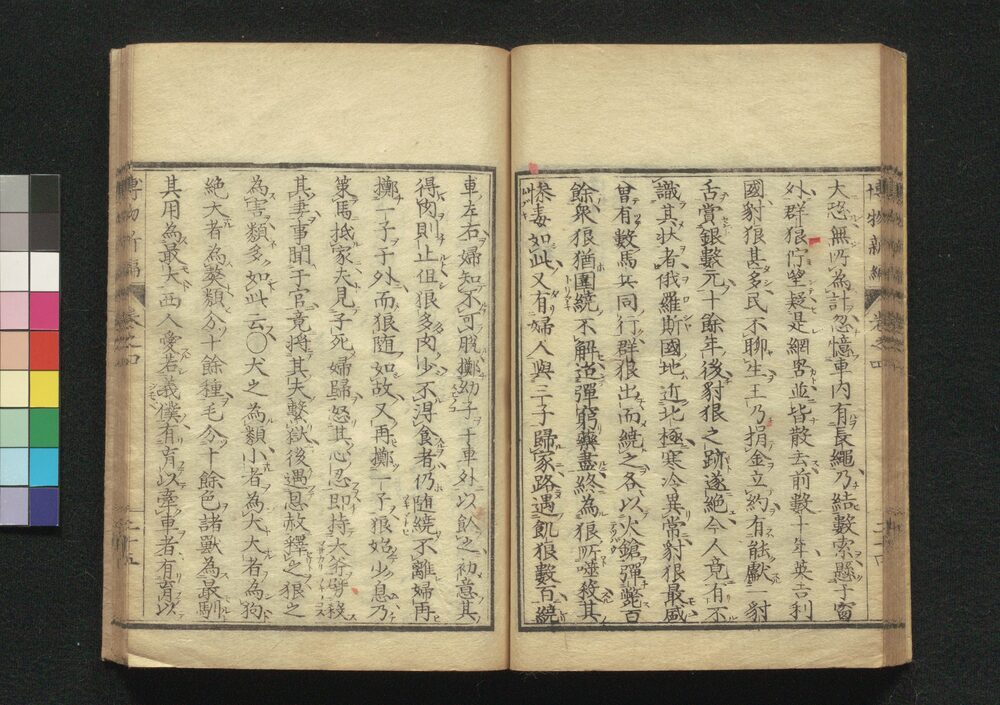 大恐無所為計忽憶車内有長繩乃結數索懸于窗
外群狼佇望疑是網罟並皆散去前數十年英吉利
國豺狼甚多民不聊生王乃捐金立約有能獻一豺
舌賞銀數元十餘年後豺狼之跡遂絕今人竟有不
識其狀者俄羅斯國地近北極寒冷異常豺狼最盛
曾有數馬兵同行群狼出而繞之各以火鎗彈斃百
餘衆狼猶圍繞不解迨彈窮藥盡終為狼所噬殺其
慘毒如此又有婦人與三子歸家路遇飢狼數百繞
車左右婦知不可脫擲幼子于車外以飲之初意其
得肉則止但狼多肉少不得食者仍隨繞不離婦再
擲一子于外而狼随如故又再擲一子狼始少息乃
策馬抵家夫見子死婦歸怒其心忍即持大斧劈殺
其妻事聞于官竟將其夫繫獄後遇恩赦釋之狼之
為害類多如此云〇犬之為類小者為犬大者為狗
絶大者為獒類分十餘種毛分十餘色諸獸為最馴
其用為最大西人愛若義僕有有以牽車者有有以
博物新編
卷之四
二十四
博物新編
卷之四
二十五